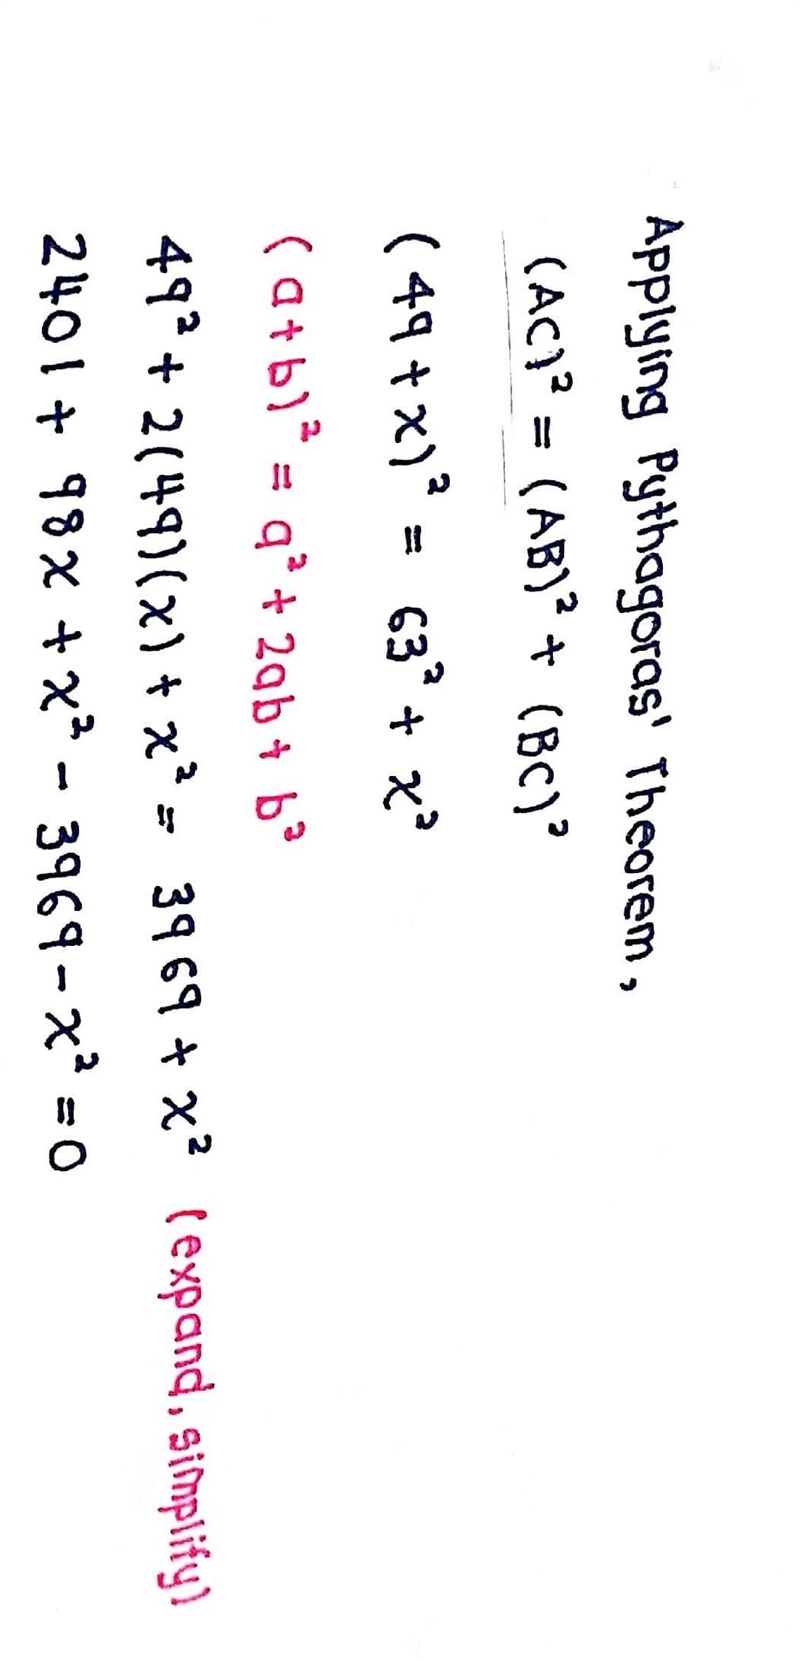 Applying Pythagoras' Theorem,
(AC)² = (AB)² + (BC)²
(49 + x)² = 63² + x²
(a+b)² = a² + 2ab + b²
49² + 2(49)(x) + x² = 3969 + x² (expand, simplify)
2401 + 98x + x² - 3969 - x² = 0